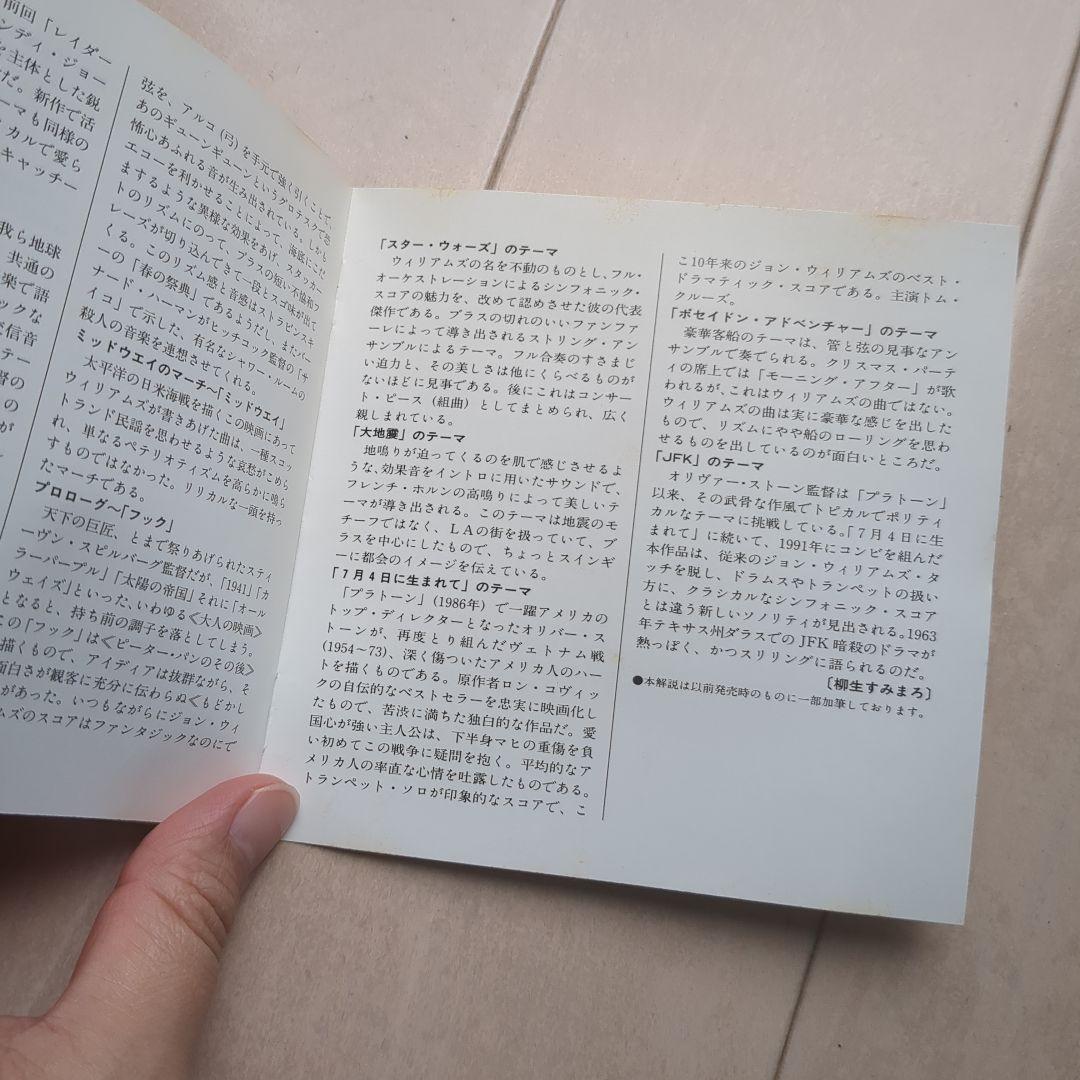 前回「レイダー
ンディ・ジョー
を主体とした鋭
だ。新作で活
ーマも同様の
カルで愛ら
キャッチー
我ら地球
共通の
楽で語
ックな
変信音
テー
督の
の
が
弦を、アルコ(弓)を手元で強く引くことで、
あのギューンギューンというグロテスクで恐
怖心あふれる音が生み出されている。しかも
エコーを利かせることによって、海底にこだ
まするような異様な効果をあげ、スタッカー
トのリズムにのって、ブラスの短い不協和フ
レーズが切り込んできて一段とスゴ味が出て
くる。このリズム感と音感はストラビンスキ
ーの「春の祭典」であるようだし、またバー
ナード・ハーマンがヒッチコック監督の「サ
イコ」で示した、有名なシャワー・ルームの
殺人の音楽を連想させてくれる。
ミッドウエイのマーチ〜「ミッドウエイ」
太平洋の日米海戦を描くこの映画にあって
ウィリアムズが書きあげた曲は、一種スコッ
トランド民謡を思わせるような哀愁がこめら
れ、単なるペテリオティズムを高らかに鳴ら
すものではなかった。リリカルな一頭を持っ
たマーチである。
プロローグ〜「フック」
天下の巨匠、とまで祭りあげられたスティ
ーヴン・スピルバーグ監督だが、「1941」「カ
ラーパープル」「太陽の帝国」それに「オール
ウェイズ」といった、いわゆる≪大人の映画≫
となると、持ち前の調子を落としてしまう。
この「フック」は≪ピーター・パンのその後≫
描くもので、アイディアは抜群ながら、そ
面白さが観客に充分に伝わらぬ≪もどかし
があった。いつもながらにジョン・ウィ
ムズのスコアはファンタジックなのにで
「スター・ウォーズ」のテーマ
ウィリアムズの名を不動のものとし、フル・
オーケストレーションによるシンフォニック・
スコアの魅力を、改めて認めさせた彼の代表
傑作である。ブラスの切れのいいファンファ
ーレによって導き出されるストリング・アン
サンブルによるテーマ。フル合奏のすさまじ
い迫力と、その美しさは他にくらべるものが
ないほどに見事である。後にこれはコンサー
ト・ピース(組曲)としてまとめられ、広く
親しまれている。
「大地震」のテーマ
地鳴りが迫ってくるのを肌で感じさせるよ
うな、効果音をイントロに用いたサウンドで、
フレンチ・ホルンの高鳴りによって美しいテ
ーマが導き出される。このテーマは地震のモ
チーフではなく、LAの街を扱っていて、ブ
ラスを中心にしたもので、ちょっとスインギ
ーに都会のイメージを伝えている。
「7月4日に生まれて」のテーマ
「プラトーン」(1986年)で一躍アメリカの
トップ・ディレクターとなったオリバー・ス
トーンが、再度とり組んだヴェトナム戦
(1954〜73)、深く傷ついたアメリカ人のハー
トを描くものである。原作者ロン・コヴィッ
クの自伝的なベストセラーを忠実に映画化し
たもので、苦渋に満ちた独白的な作品だ。愛
国心が強い主人公は、下半身マヒの重傷を負
い初めてこの戦争に疑問を抱く。平均的なア
メリカ人の率直な心情を吐露したものである。
トランペット・ソロが印象的なスコアで、こ
こ10年来のジョン・ウィリアムズのベスト・
ドラマティック・スコアである。主演トム・
クルーズ。
「ポセイドン・アドベンチャー」のテーマ
豪華客船のテーマは、管と弦の見事なアン
サンブルで奏でられる。クリスマス・パーテ
ィの席上では「モーニング・アフター」が歌
われるが、これはウィリアムズの曲ではない。
ウィリアムズの曲は実に豪華な感じを出した
もので、リズムにやや船のローリングを思わ
せるものを出しているのが面白いところだ。
「JFK」のテーマ
オリヴァー・ストーン監督は「プラトーン」
以来、その武骨な作風でトピカルでポリティ
カルなテーマに挑戦している。「7月4日に生
まれて」に続いて、1991年にコンビを組んだ
本作品は、従来のジョン・ウィリアムズ・タ
ッチを脱し、ドラムスやトランペットの扱い
方に、クラシカルなシンフォニック・スコア
とは違う新しいソノリティが見出される。1963
年テキサス州ダラスでのJFK暗殺のドラマが
熱っぽく、かつスリリングに語られるのだ。
〔柳生すみまろ〕
●本解説は以前発売時のものに一部加筆しております。